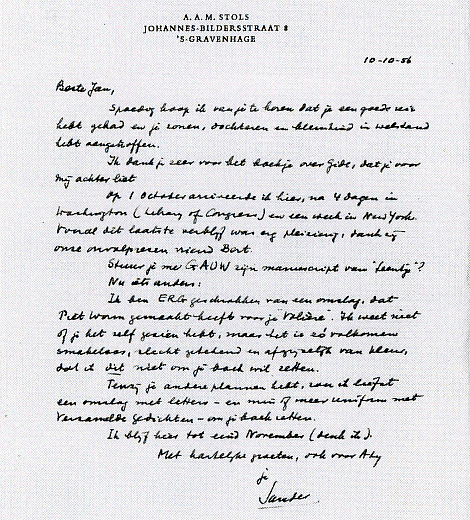 A. A. M. STOLS
JOHANNES-BILDERSSTRAAT 8
'S-GRAVENHAGE
10-10-56
Beste Jan,
Spoedig hoop ik van je te horen dat je een goede reis
hebt gehad en je zonen, dochteren en kleinkind in welstand
hebt aangetroffen.
Ik dank je zeer voor het boekje over Gide, dat je voor
mij achter liet
Op 1 October arriveerde ik hier, na 4 dagen in
Washington (Library of Congress) en een week in New York.
Vooral dit laatste verblijf was erg plezierig, dank zij
onze onvolprezen vriend Bert.
Stuur je me GAUW zijn manuscript van "Leentje"?
Nu iets anders:
Ik ben ERG geschrokken van een omslag, dat
Piet Worm gemaakt heeft voor je Volière. Ik weet niet
of je het zelf gezien hebt, maar het is zó volkomen
smakeloos, slecht getekend en afgrijselijk van kleur,
dat ik dit niet om je boek wil zetten.
Tenzij je andere plannen hebt, zou ik liefst
een omslag met letters - en min of meer uniform met
Verzamelde Gedichten - om je boek zetten.
Ik blijf hier tot eind November (denk ik).
Met hartelijke groeten, ook voor Ady
je
Sander